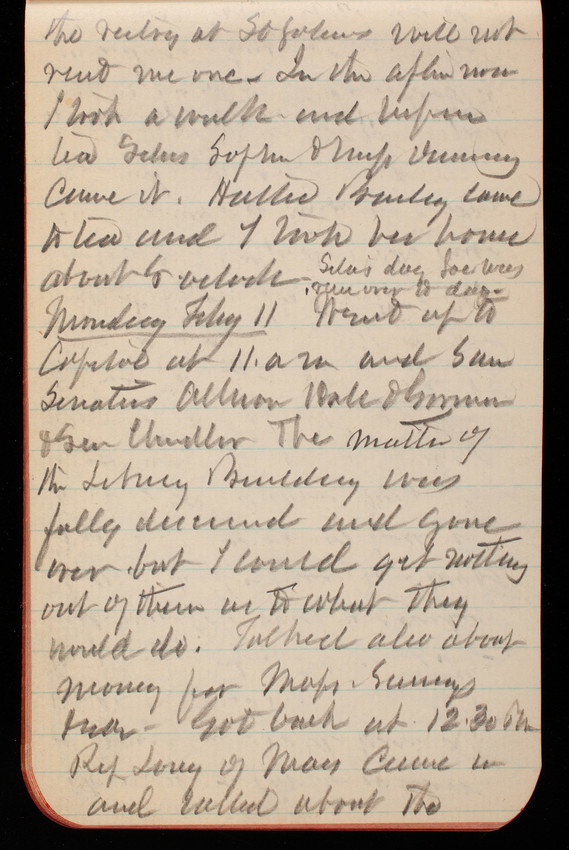 the rectory at St Johns will not
rent me one. In the afternoon
I took a walk and before
tea Silas Sophie & Miss
came in. Hattie came
to tea and I took her home
about 6 oclock. Silas day Joe was
run over to day
Monday Feby 11 Went up to
Capitol at 11. a m and saw
Senators Allison Hale & Gorman
& Sen Chandler The matter of
the Library Building was
fully discussed and gone
over but I could get nothing
out of them as to what they
would do. Talked also about
money for Maps. Surveys
&c. Got back at 12.30 Pm
Rep Long of Mass came in
and talked about the